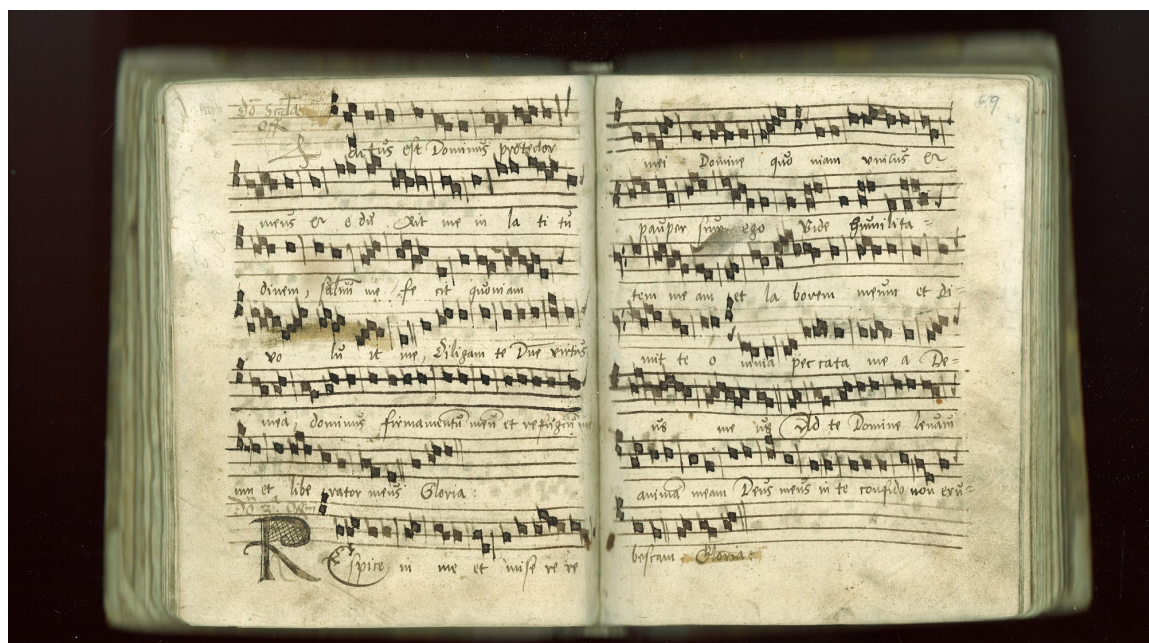 ditus est Dominus protector
meus et e du xit me in la ti tu
dinem, salvum me fe cit quoniam
vo lu it me, Diligam te Dne virtus
mea, dominus firmamentū meū et refugiū
um et libe rator meus Gloria:
R
Espice in me et mise re re
69
mei Domine quo niam unicus et
pauper sum ego Vide humilita=
tem me am et la borem meum et di=
mit te o mnia peccata me a De=
us me us Ad te Domine levavi
animā meam Deus meus in te confido non eru=
bescam, Gloria: